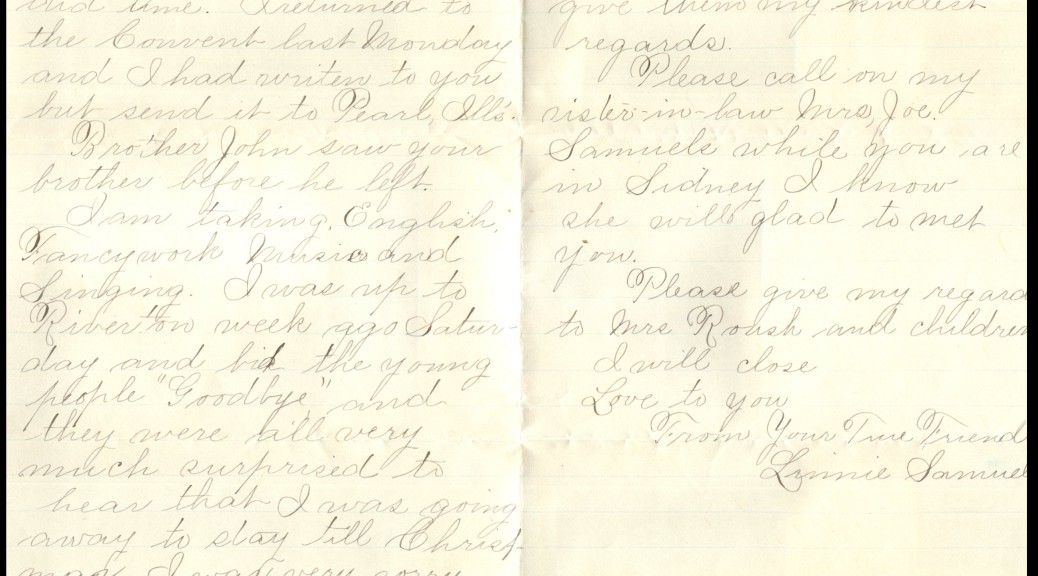 did time. I returned to
the Convent last Monday
and I had writen to you
but send it to Pearl, Ill's.
Brother John saw your
brother before he left.
I am taking, English,
Fancywork Music and
Singing. I was up to
Riverton week ago Satur-
day and bid the young
people "Goodbye" and
they were all very
much surprised to
hear that I was going
away to stay till Christ-
mas I was very sorry
give them my kindest
regards.
Please call on my
sister-in-law Mrs, Joe.
Samuels while you are
in Sidney I know
she will glad to met
you.
Please give my regard
to Mrs Roush and children
I will close
Love to you
From Your True Friend
Linnie Samuel